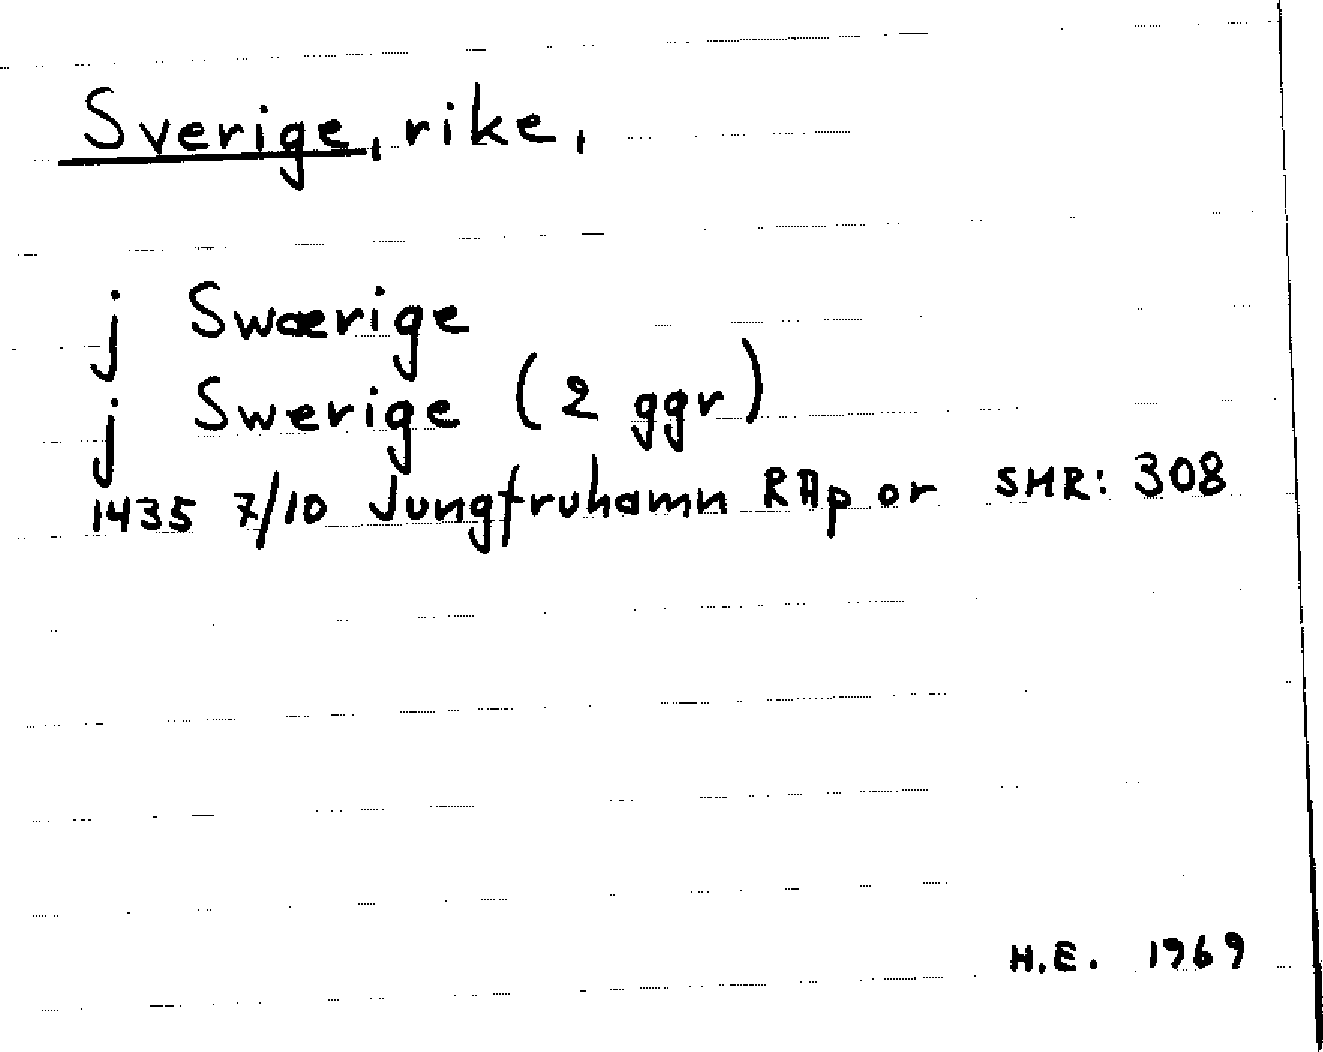 Sverige, rike,
j Swærige
j Swerige (2 ggr)
1435 7/10 Jungfruhamn RAp or SMR: 308
H.E. 1969